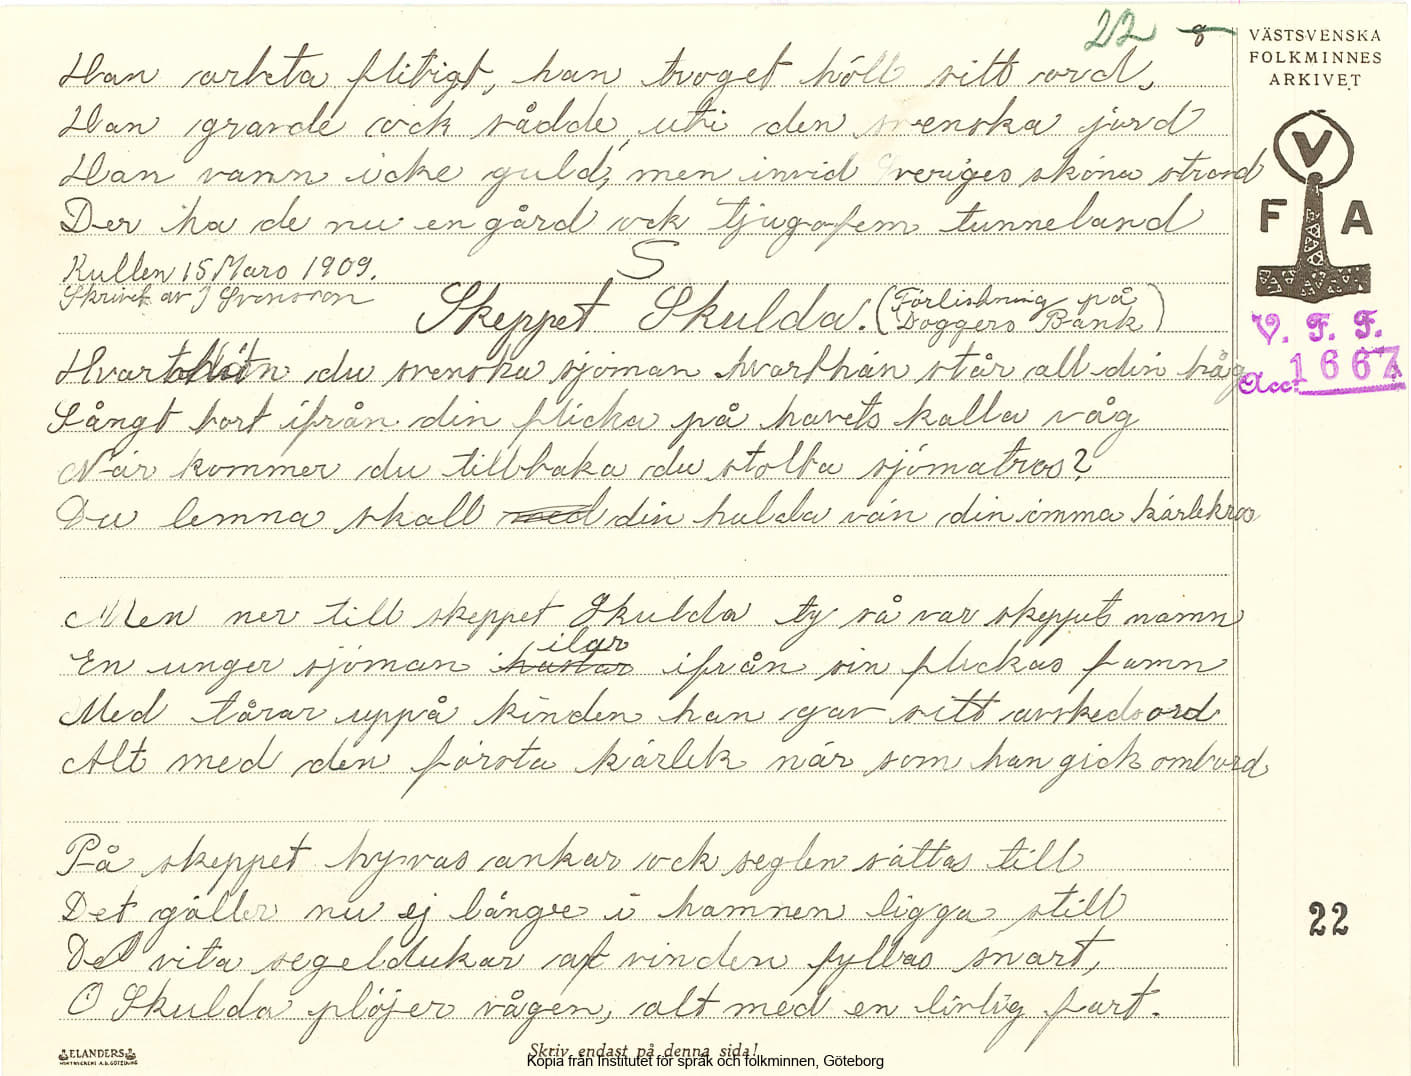 22 8
VÄSTSVENSKA
FOLKMINNES
ARKIVET
V
F A
V. F. F.
Acc. 1667
Han arbeta flitigt, han troget höll sitt ord,
Han gravde ock sådde, uti den svenska jord
Han vann icke guld, men invid Sveriges sköna strand
Der ha de nu en gård ock tjugofem tunneland
Kullen 15 Mars 1909.
Skrivet av J Svensson
S
Skeppet Skulda. (Förlisning på
Doggers Bank)
Hvart hän du svenska sjöman hvarthän står all din håg
Långt bort ifrån din flicka på havets kalla våg
När kommer du tillbaka du stolta sjömatros?
Du lemna skall med din hulda vän din ömma kärleksros
Men ner till skeppet Skulda ty så var skeppets namn
En unger sjöman hastar ilar ifrån sin flickas famn
Med tårar uppå kinden han gav sitt avskedsord
Alt med den första kärlek när som han gick ombord
På skeppet hyvas ankar ock seglen sättas till
Det gäller nu ej längre i hamnen ligga still
De vita segeldukar af vinden fyllas snart,
O Skulda plöjer vågen, alt med en livlig fart.
22
ELANDERS
Skriv endast på denna sida!
Kopia från Institutet för språk och folkminnen, Göteborg